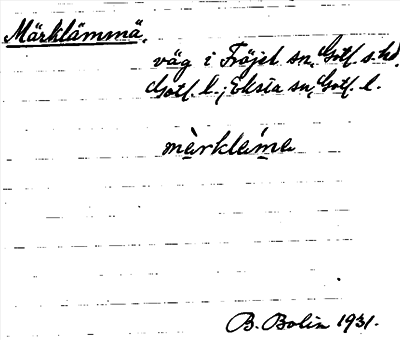 Märklämmä,
väg i Fröjel sn, Gotl. s. hd,
Gotl. l.; Eksta sn, Gotl. l.
mạ̀rklẹ́ma
B. Bolin 1931.